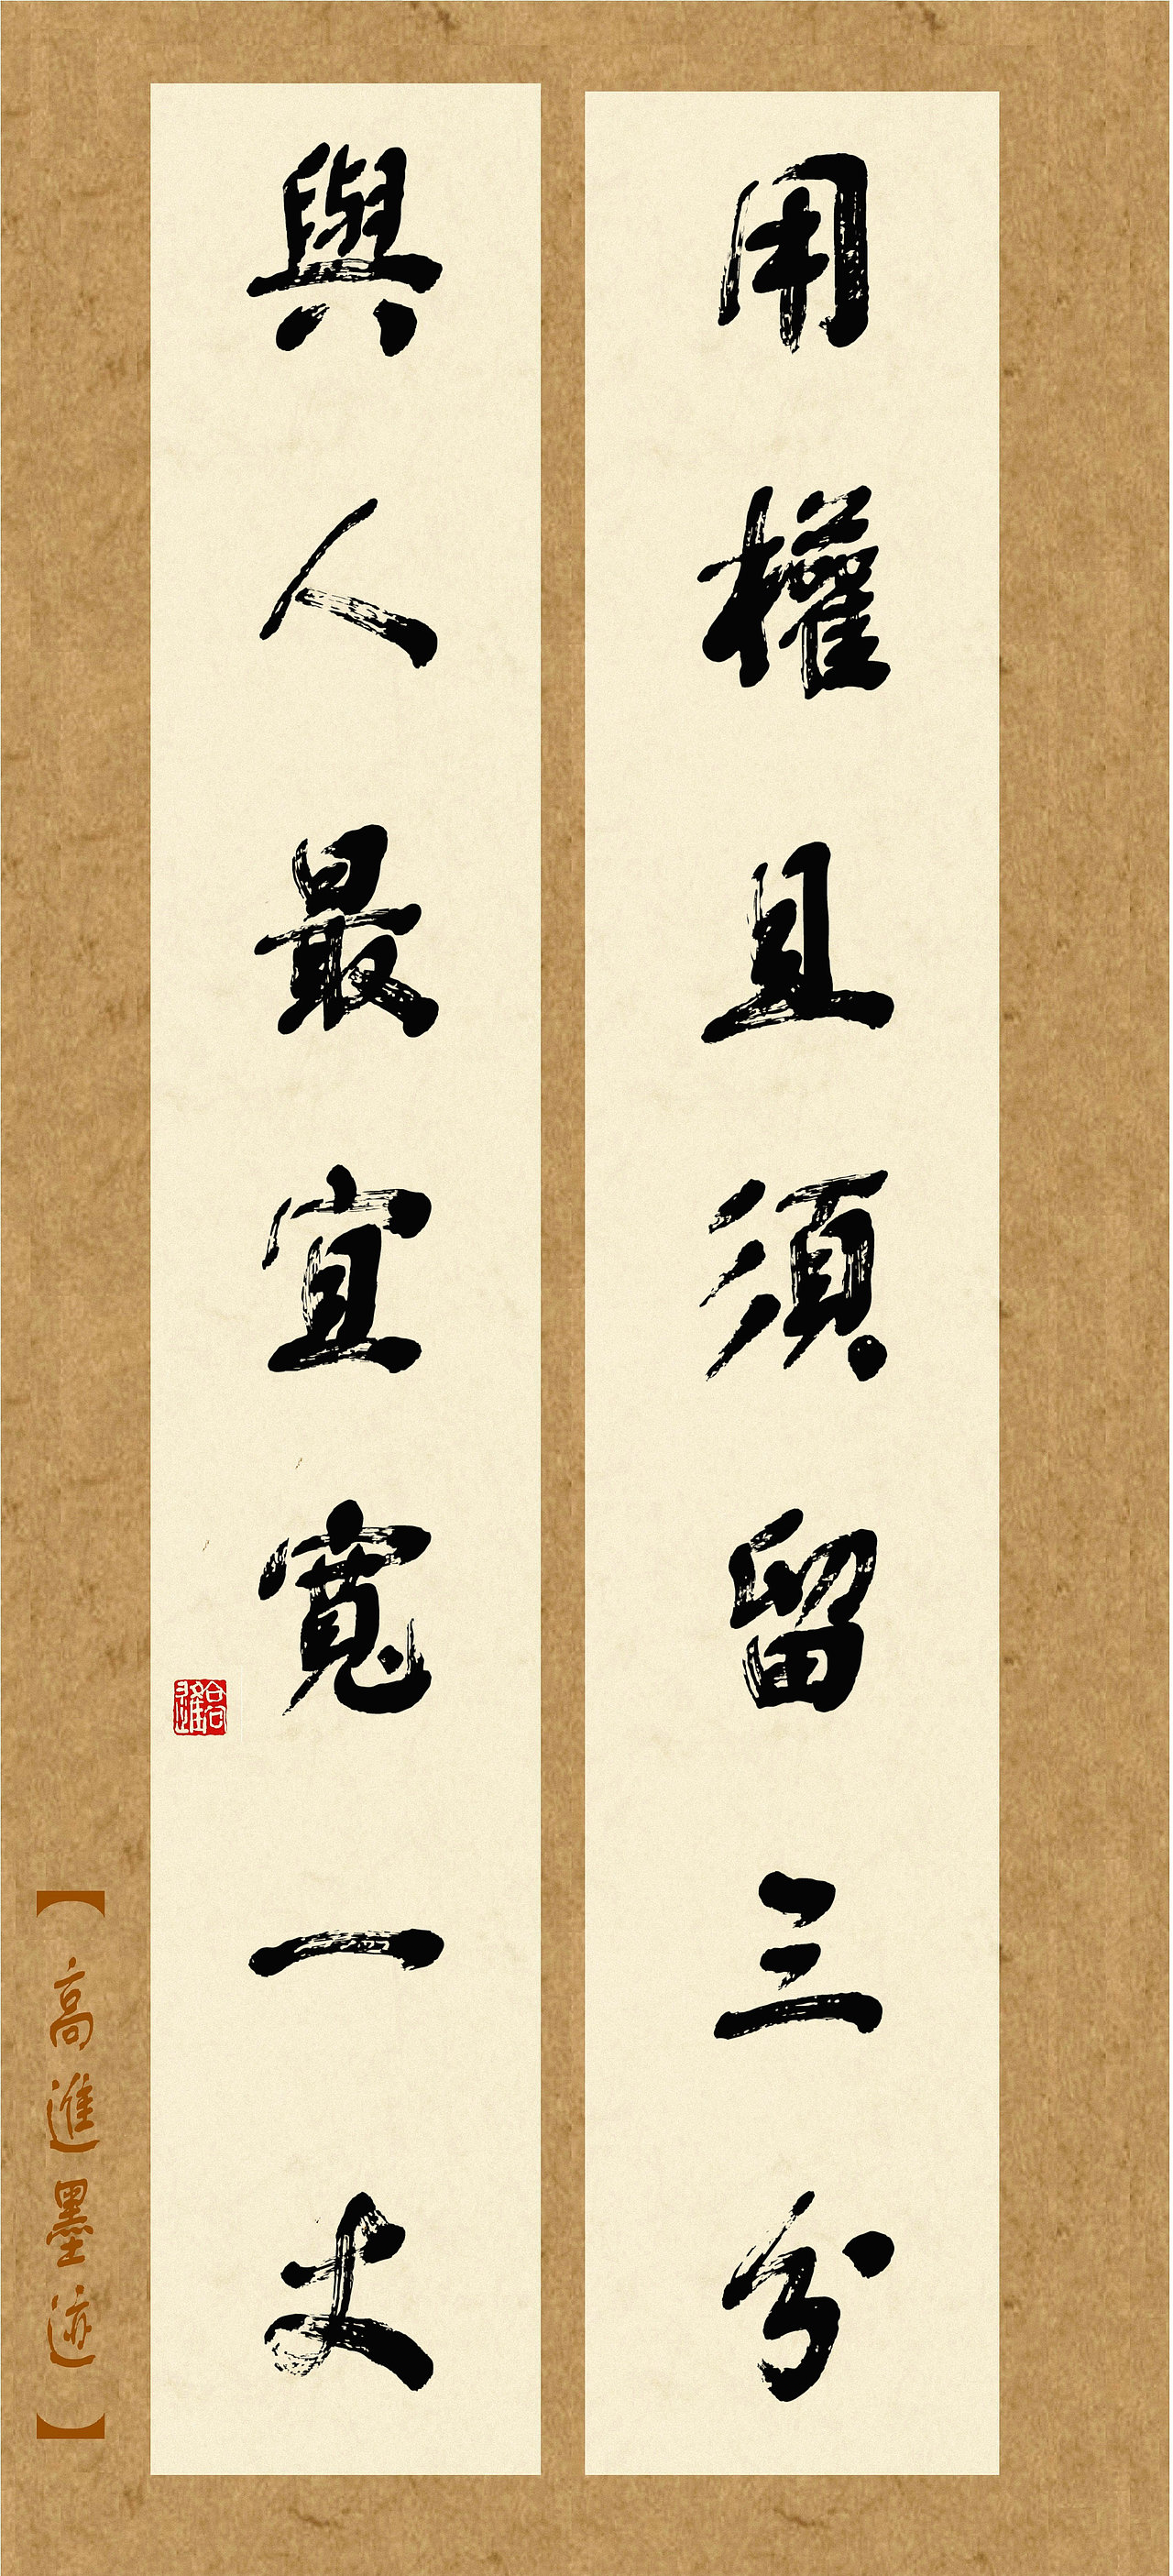 用權且須留三分
與人最宜寬一丈
【高進墨迹】